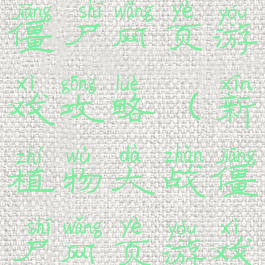 jiāng shī wǎng yè yóu
僵尸网页游
xì gōng lüè xīn
戏攻略(新
zhí wù dà zhàn jiāng
植物大战僵
shī wǎng yè yóu xì
尸网页游戏